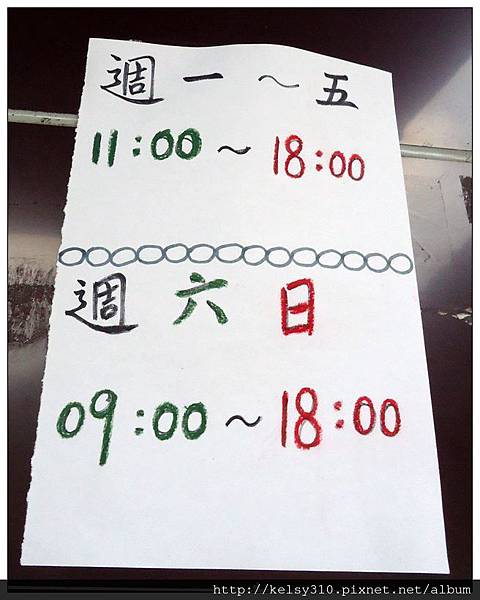 週一～五
11:00～18:00
週六日
09:00～18:00
http://kelsy310.pixnet.net/album